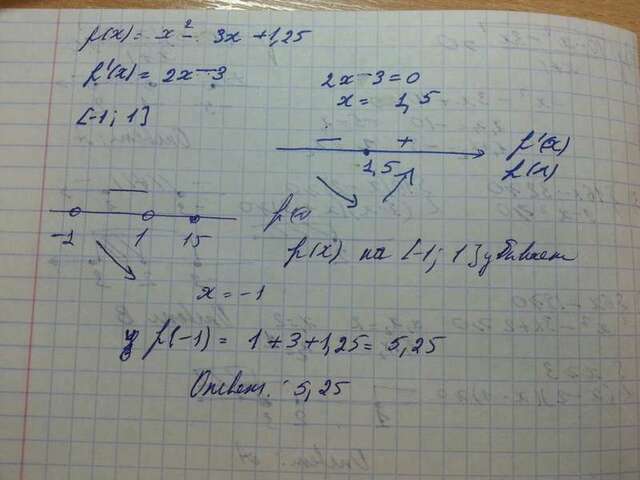 f(x) = x² - 3x + 1,25
f'(x) = 2x - 3
2x - 3 = 0
x = 1,5
[-1; 1]
- +
1,5
f'(x)
f(x)
-
-1 1 15
f(x) на [-1; 1] убывает
x = -1
f(-1) = 1 + 3 + 1,25 = 5,25
Ответ: 5,25